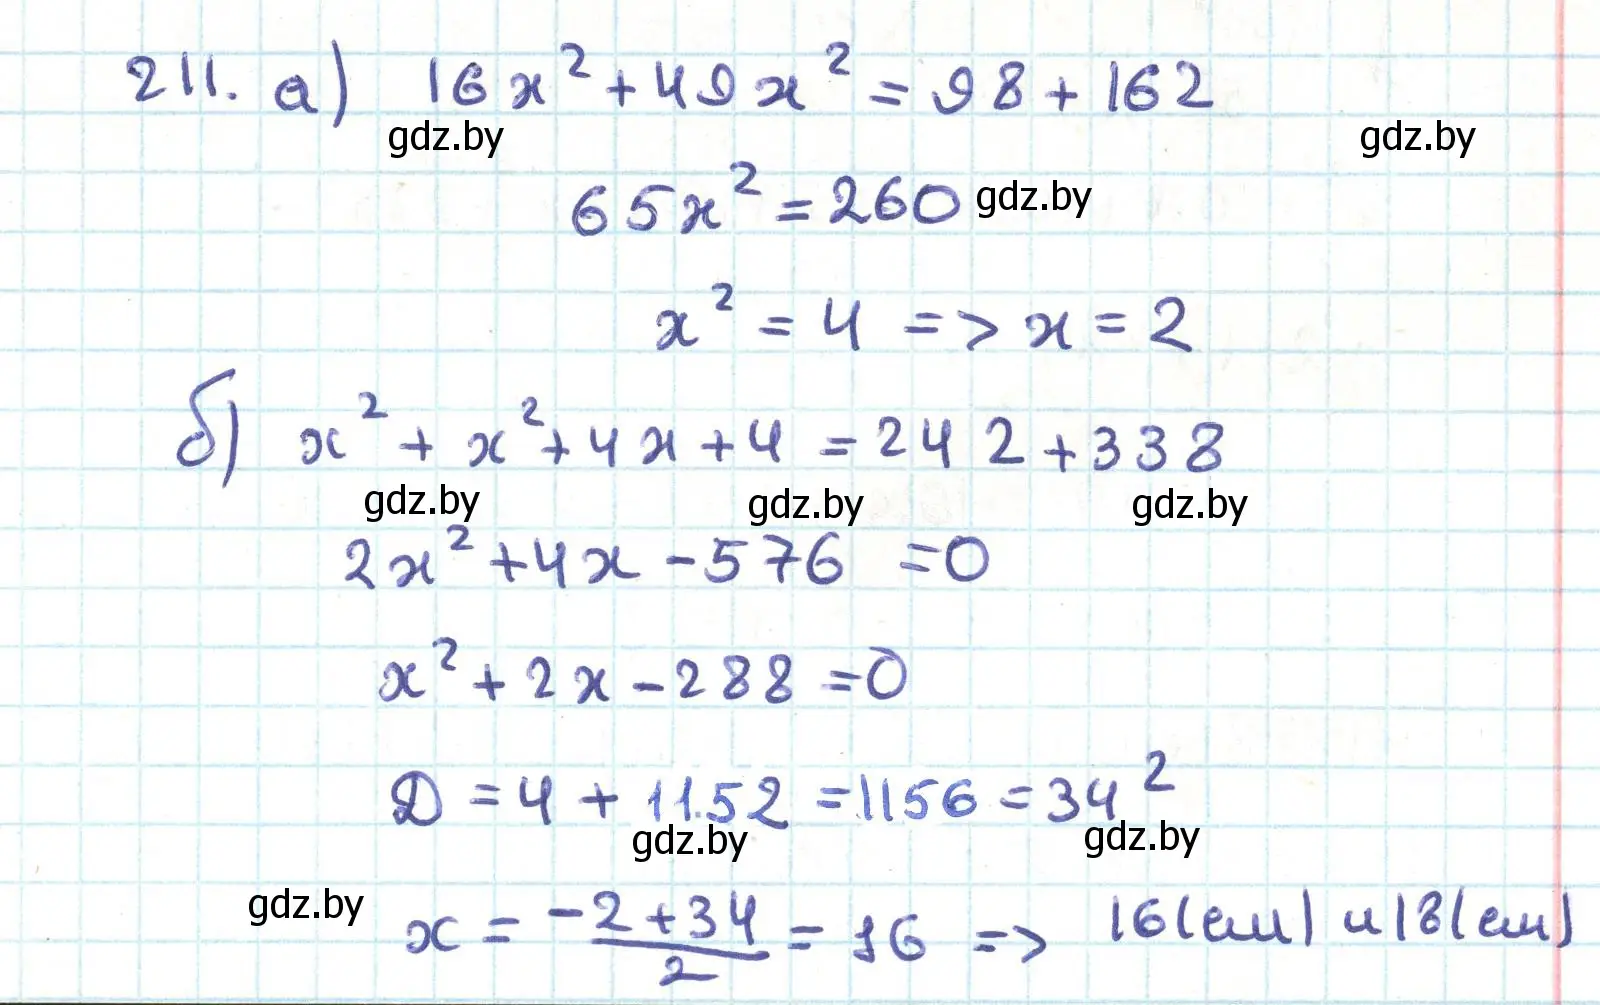 211. а) 16x² + 49x² = 98 + 162
gdz.by gdz.by
65x² = 260 gdz.by
x² = 4 => x = 2
б) x² + x² + 4x + 4 = 242 + 338
gdz.by gdz.by gdz.by
2x² + 4x - 576 = 0
x² + 2x - 288 = 0
D = 4 + 1152 = 1156 = 34²
gdz.by gdz.by
gdz.by x = (-2 + 34)/2 = 16 => 16(см) и 18(см)